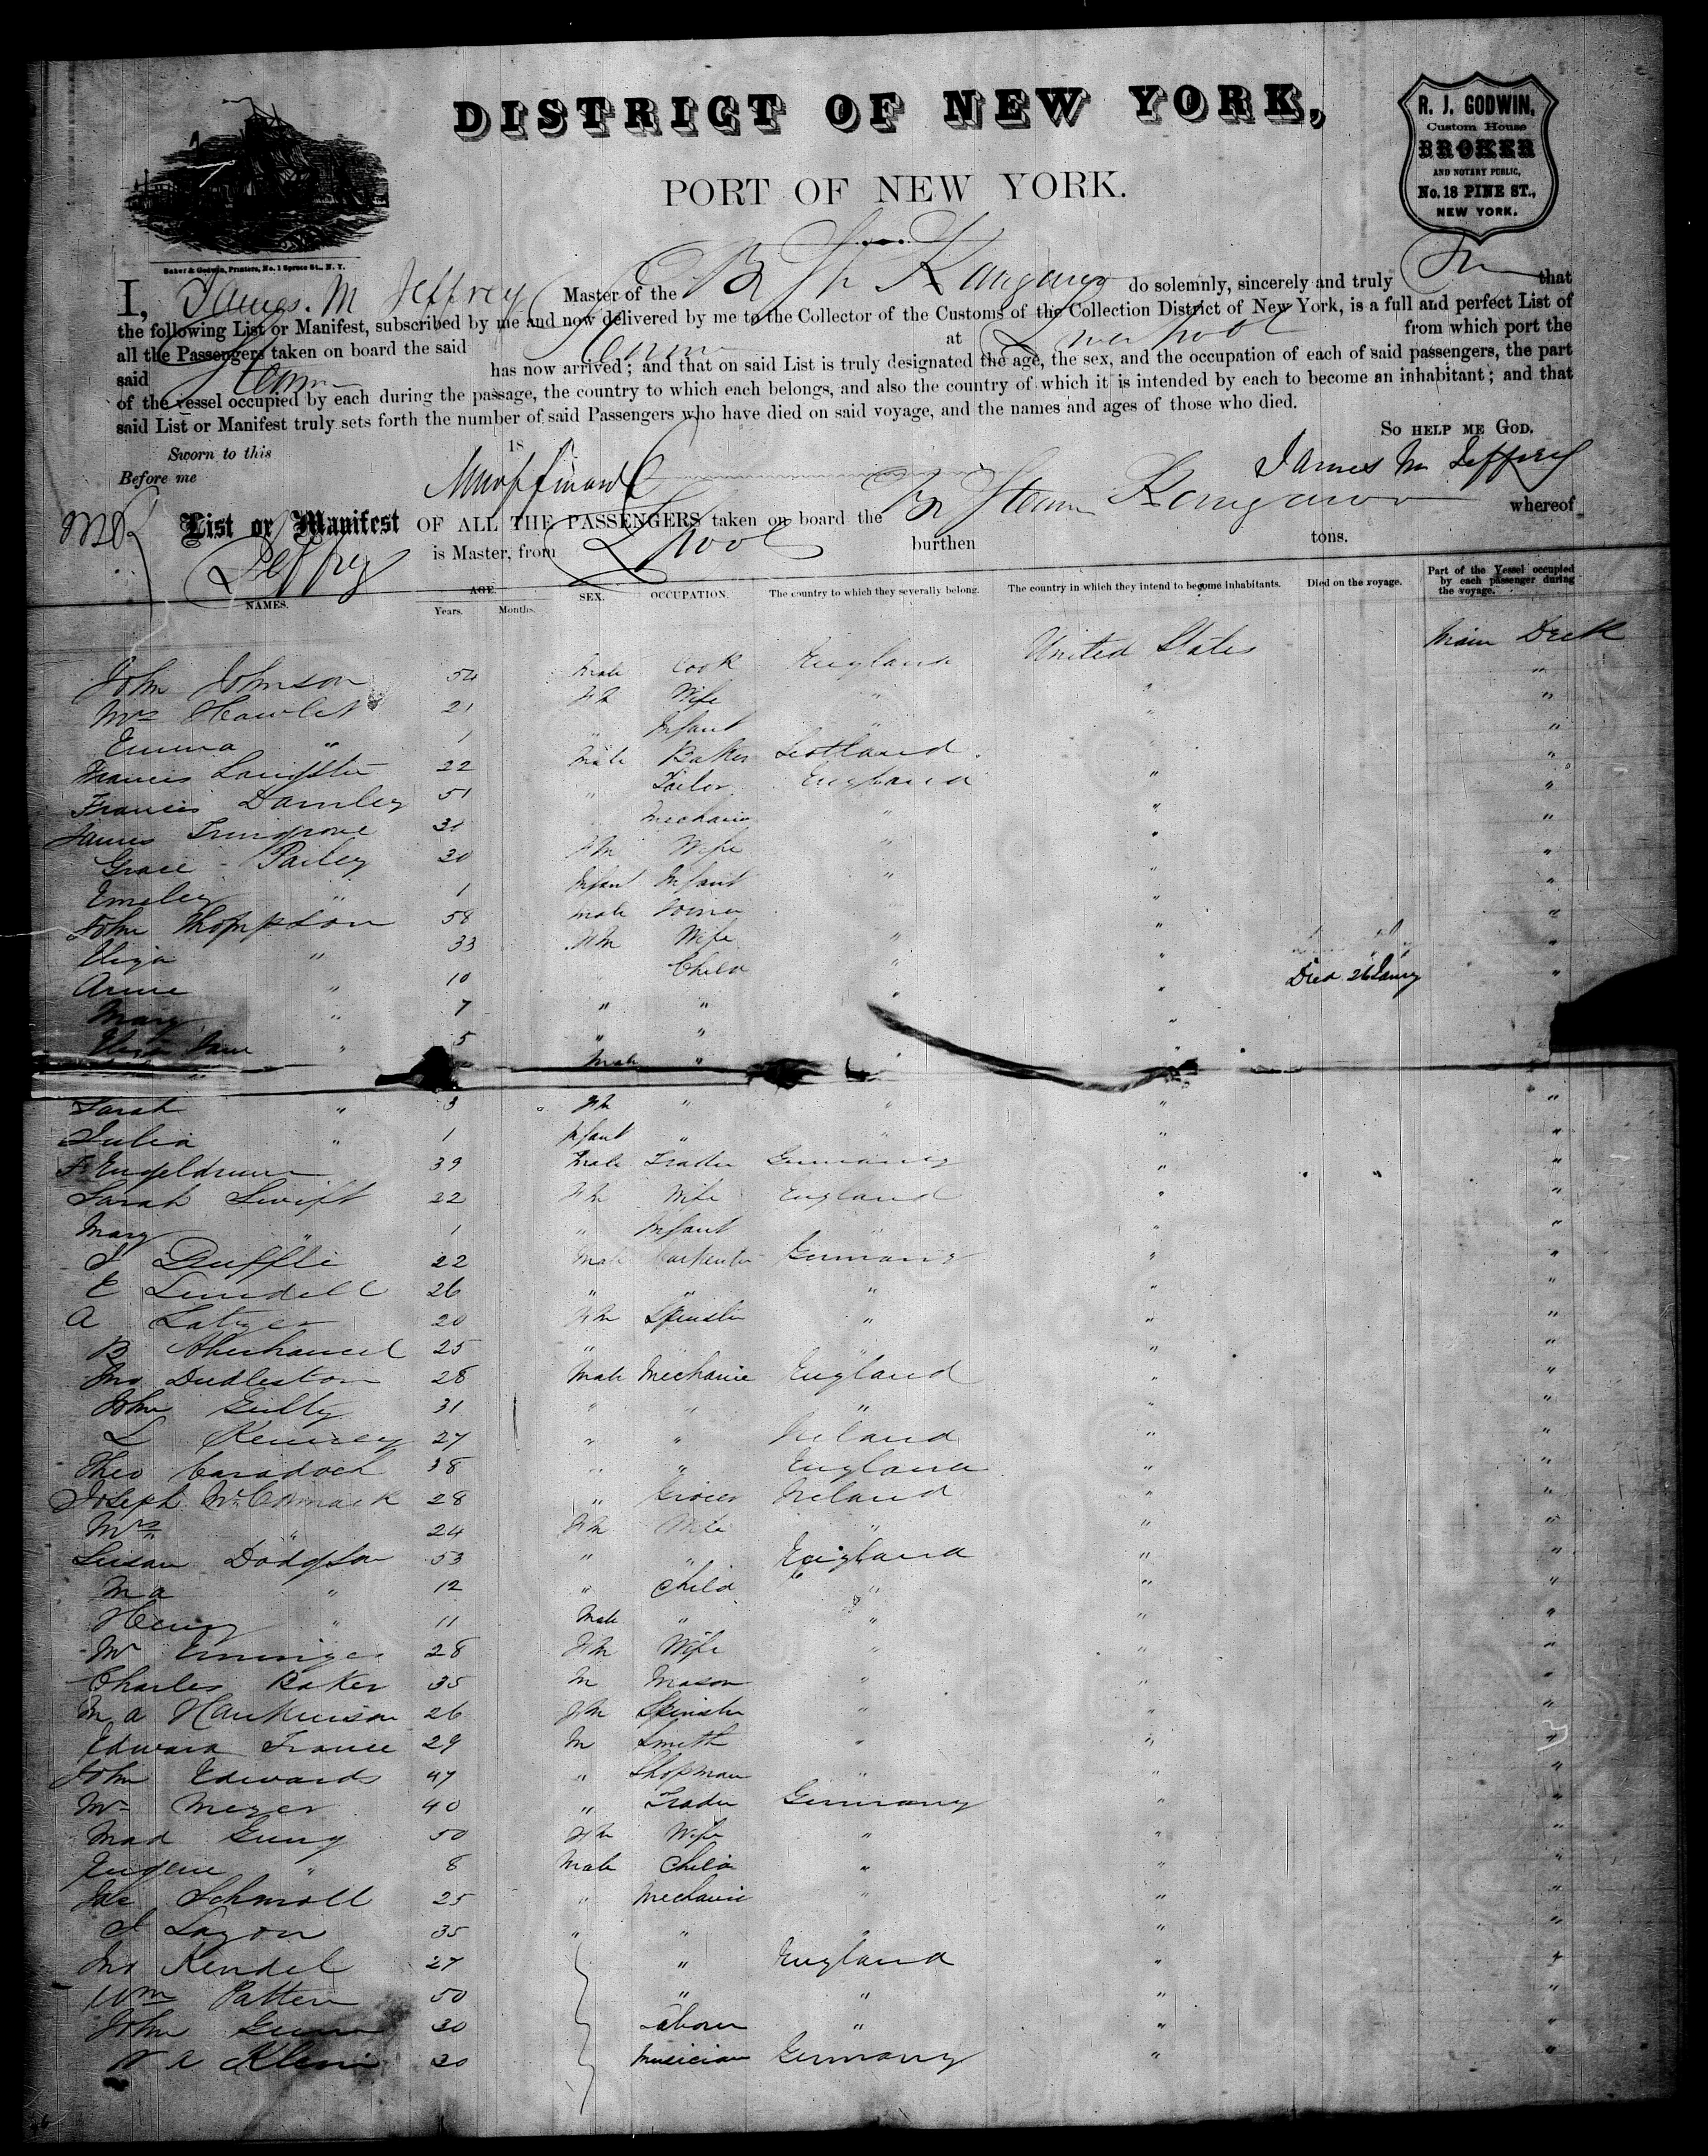 DISTRICT OF NEW YORK,
PORT OF NEW YORK.
R. J. GODWIN,
Custom House
BROKER
AND NOTARY PUBLIC,
No. 18 PINE ST.,
NEW YORK.
Baker & Godwin, Printers, No. 1 Spruce St., N. Y.
I, James. M Jeffrey Master of the Br Str Kangaroo do solemnly, sincerely and truly that
the following List or Manifest, subscribed by me and now delivered by me to the Collector of the Customs of the Collection District of New York, is a full and perfect List of
all the Passengers taken on board the said at Liverpool from which port the
said Steam has now arrived; and that on said List is truly designated the age, the sex, and the occupation of each of said passengers, the part
of the vessel occupied by each during the passage, the country to which each belongs, and also the country of which it is intended by each to become an inhabitant; and that
said List or Manifest truly sets forth the number of said Passengers who have died on said voyage, and the names and ages of those who died.
So help me God.
Sworn to this 18
James M Jeffrey
Before me
List or Manifest OF ALL THE PASSENGERS taken on board the Br Steam Kangaroo whereof
Jeffrey is Master, from Lpool burthen tons.
NAMES. AGE. Years. Months. SEX. OCCUPATION. The country to which they severally belong. The country in which they intend to become inhabitants. Died on the voyage. Part of the Vessel occupied by each passenger during the voyage.
John Johnson 54 Male Cook England United States Main Deck
Mrs 21 Fm Wife " " "
Emma " 1 " Infant " " "
Francis 22 Male Baker Scotland "
Francis Damley 51 " Tailor England " "
James 31 " Mechanic " " "
Grace 30 Fm Wife " " "
Emiley " 1 Infant Infant " " "
John Thompson 58 Male Joiner " "
Eliza " 33 Fm Wife " " "
Annie " 10 Child " " Died 26 Jany "
Mary " 7 " " " " "
Jane " 5 " " "
Male " " "
Sarah " 3 Fm " " " "
Julia " 1 Infant " " " "
39 Male Trader Germany " "
Sarah Swift 22 Fm Wife England " "
Mary " 1 " Infant " " "
22 Male Carpenter Germany " "
E 26 " " " " "
A 20 Fm Spinster " " "
B 25 " " " " "
Jno Dudleston 28 Male Mechanic England " "
John 31 " " " " "
L Kenney 27 " " Ireland " "
Theo Caradock 38 " " England " "
Joseph McCormack 28 " Grocer Ireland " "
Mrs " 24 Fm Wife " " "
Susan Dodgson 53 " " England " "
M a " 12 " Child " " "
Henry " 11 Male " " " "
28 Fm Wife " " "
Charles Baker 35 M Mason " " "
M a Hankinson 26 Fm Spinster " " "
Edward France 29 M Smith " " "
John Edwards 47 " Shopman " " "
Meyer 40 " Trader Germany " "
Mad 50 Fm Wife " " "
Eugene " 8 Male Child " " "
Schmoll 25 " Mechanic " " "
35 " " " " "
Jno Kendel 27 " England " "
Wm Patten 50 " " " "
John 30 Labourer " " "
Klein 30 Musician Germany " "